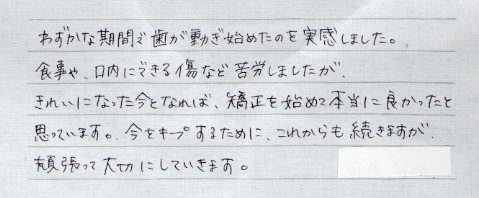 わずかな期間で歯が動き始めたのを実感しました。
食事や、口内にできる傷など苦労しましたが、
きれいになった今となれば、矯正を始めて本当に良かったと
思っています。今をキープするために、これからも続きますが、
頑張って大切にしていきます。